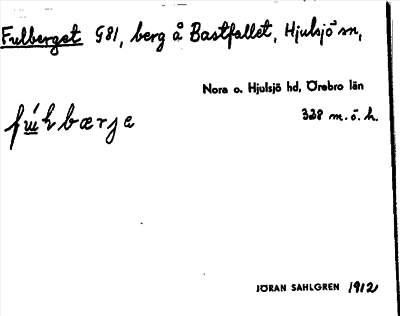 Fulberget G81, berg å Bastfallet, Hjulsjö sn,
Nora o. Hjulsjö hd, Örebro län
328 m. ö. h.
JÖRAN SAHLGREN 1912